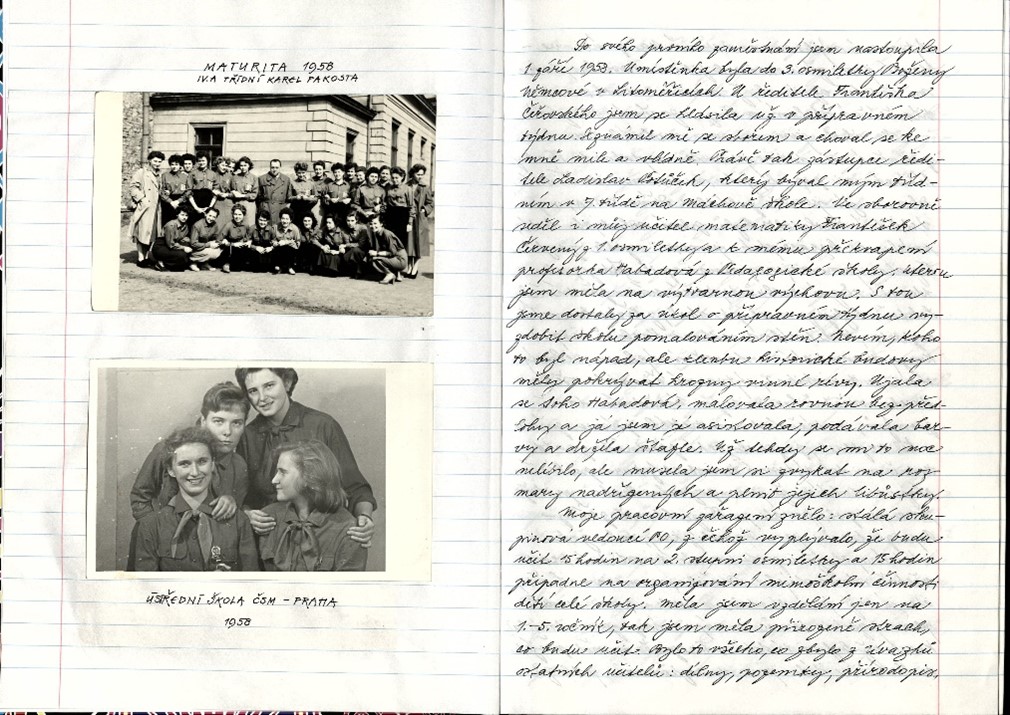 MATURITA 1958
IV.A TŘÍDNÍ KAREL PAKOSTA
ÚSTŘEDNÍ ŠKOLA ČSM – PRAHA
1958
Do svého prvního zaměstnání jem nastoupila
1. září 1958. Umístěnka byla do 3. osmiletky Boženy
Němcové v Litoměřicích. U ředitele Františka
jsem se hlásila už v přípravném
týdnu. Seznámil mě se sborem a choval se ke
mně mile a vlídně. Právě tak zástupce ředi-
tele Ladislav který býval mým tříd-
ním v 7. třídě na Máchově škole. Ve sborovně
seděl i můj učitel matematiky František
Červený z 1. osmiletky a k mému překvapení
profesorka Habadová z Pedagogické školy, kterou
jsem měla na výtvarnou výchovu. S tou
jsme dostaly za úkol o přípravném týdnu vy-
zdobit školu pomalováním stěn. Nevím, koho
to byl nápad, ale chodbu historické budovy
měly pokrývat hrozny vinné révy. Ujala
se toho Habadová, malovala rovnou bez před-
lohy a já jsem jí asistovala, podávala bar-
vy a držela štafle. Už tehdy se mi to moc
nelíbilo, ale musela jsem si zvykat na roz-
mary nadřízených a plnit jejich libůstky.
Moje pracovní zařazení znělo: stálá sku-
pinová vedoucí PO, z čehož vyplývalo, že budu
učit 15 hodin na 2. stupni osmiletky a 15 hodin
připadne na organizování mimoškolní činnosti
dětí celé školy. Měla jsem vzdělání jen na
1.-5. ročník, tak jsem měla přirozeně strach,
co budu učit. Bylo to všecko, co zbylo z úvazků
ostatních učitelů: dílny, pozemky, přírodopis,